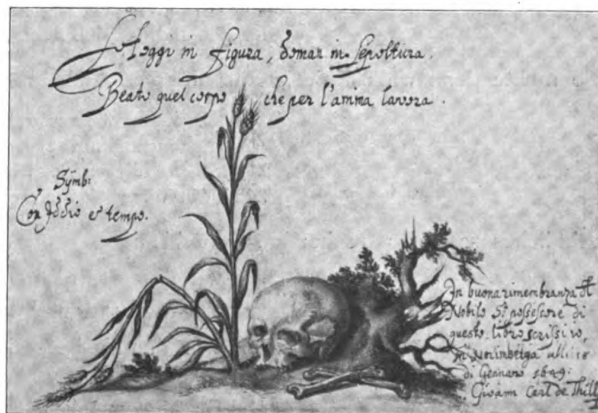 hoggi in figura, domar in sepoltura.
Beato quel corpo che per l'anima lavora.
Symb:
Con Iddio e'l tempo.
In buona rimembranza al
Nobile Sr possessore di
questo libro scrissi io,
in Norimberga alli 18
di Gennaro 1649.
Giovann Carl de Thill